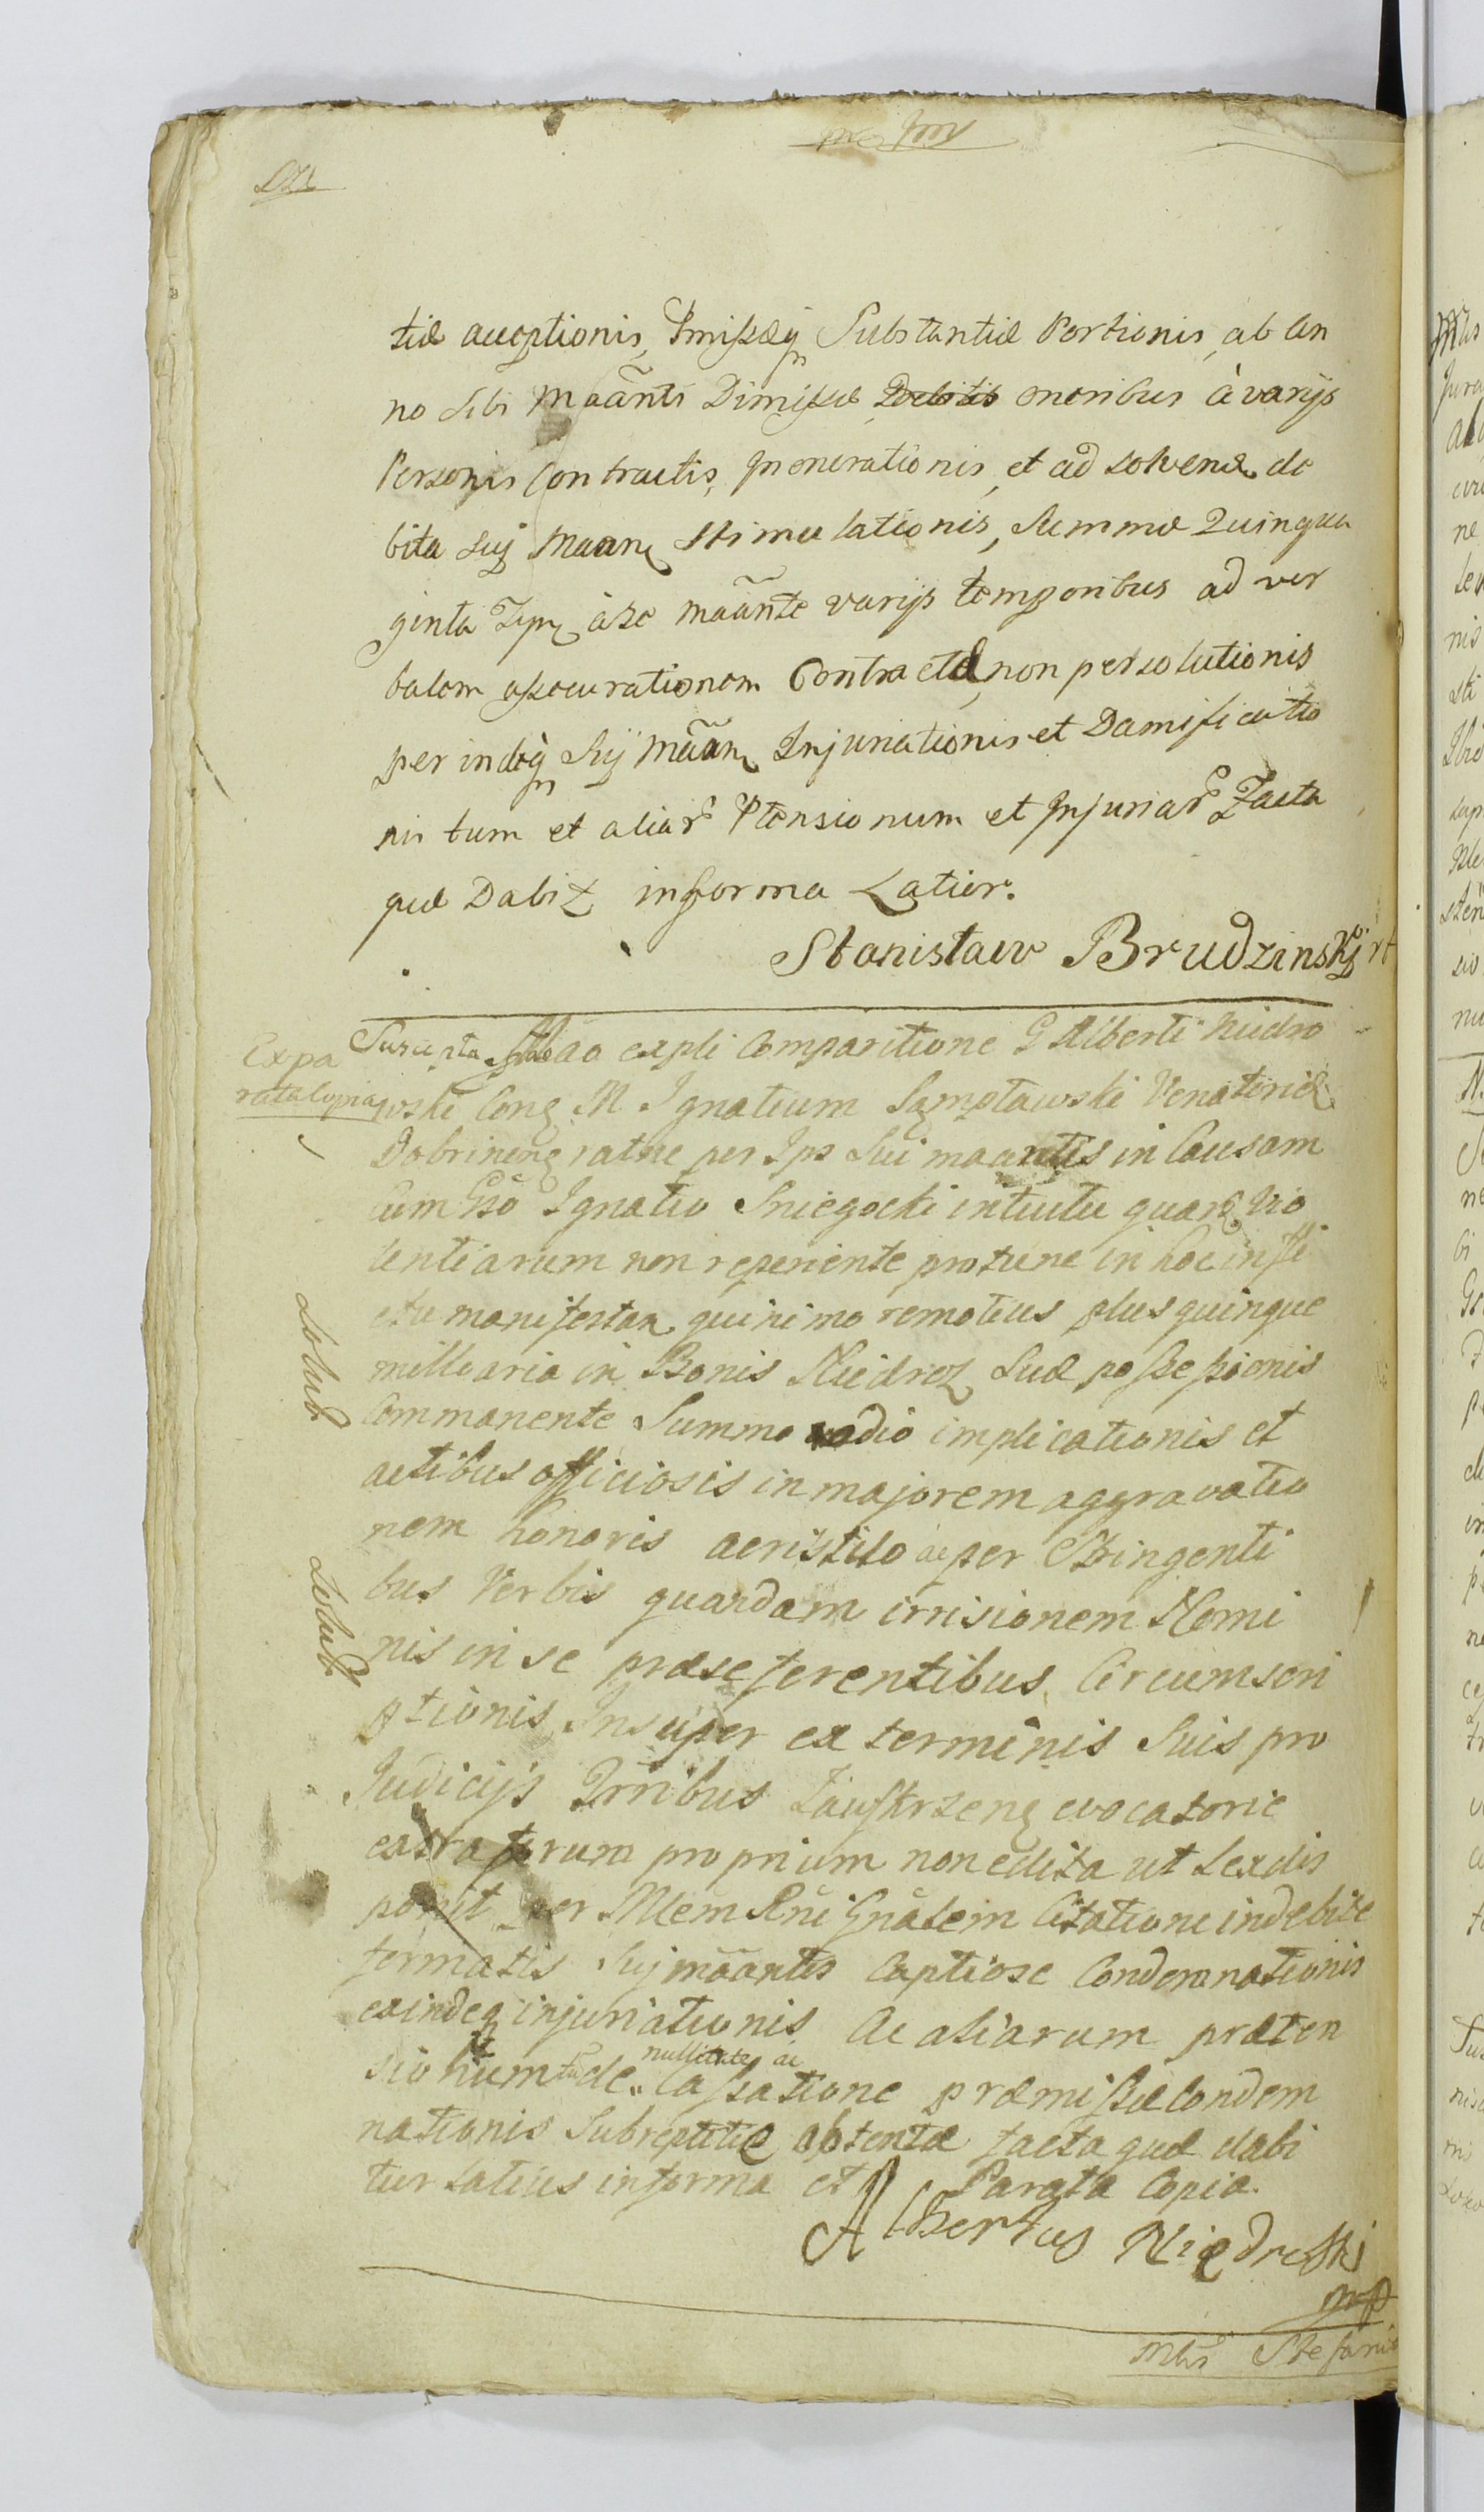 tiæ acceptionis, Pmissæq Substantiæ Portionis, ab an
no sibi Maānti Dimissæ Debitis oneribus à varijs
Personis Contractis, Inonerationis, et ad solvend de
bita sui Maan Stimulationis, Summæ Quinqua
ginta à se maānte varijs temporibus ad ver
balem assecurationem Contractæ, non persolutionis
per indeq Sij Māan Injuriationis et Damificatio
nis tum et aliar Ptensionum et Injuriar Facta
quæ Dabit in forma Latior.
Stanisław Brudzinski
Expa
rata copia
Suscepta Mão expli Comparitione G Alberti Niedro
wski Cong M Ignatium Sampławski Venatorid
Dobrineng ratne per Ips Sui maantis in Causam
cum Gso Ignatio Sniegocki intuitu quar Vio
lentiarum non reperiente protunc in hoc insti
tu manifestan quinimo remotius plus quinque
milliaria in Bonis Niedroz Suæ possessionis
Commanente Summo odio implicationis et
actibus officiosis in majorem aggravatio
nem honoris acri stilo ac per stringenti
bus Verbis quandam irrisionem Nomi
nis in se præseferentibus Circumscri
ptionis Insuper ex terminis Suis pro
Judicijs Trribus Zauskrzeng evocatorie
extra forum proprium non edita ut Lex dis
ponit per Mlem Rni Gnalem Citatione indebite
formatis Sui māantis Captiose Condemnationis
exindeq injuriationis Ac aliarum præten
sionum tu de nullitate ac Cassatione præmissæ Condem
nationis Subreptitiæ obtentæ facta quæ dabi
tur latius in forma et Parata Copia.
Albertus Niedroski
mp
Mlis Stefani